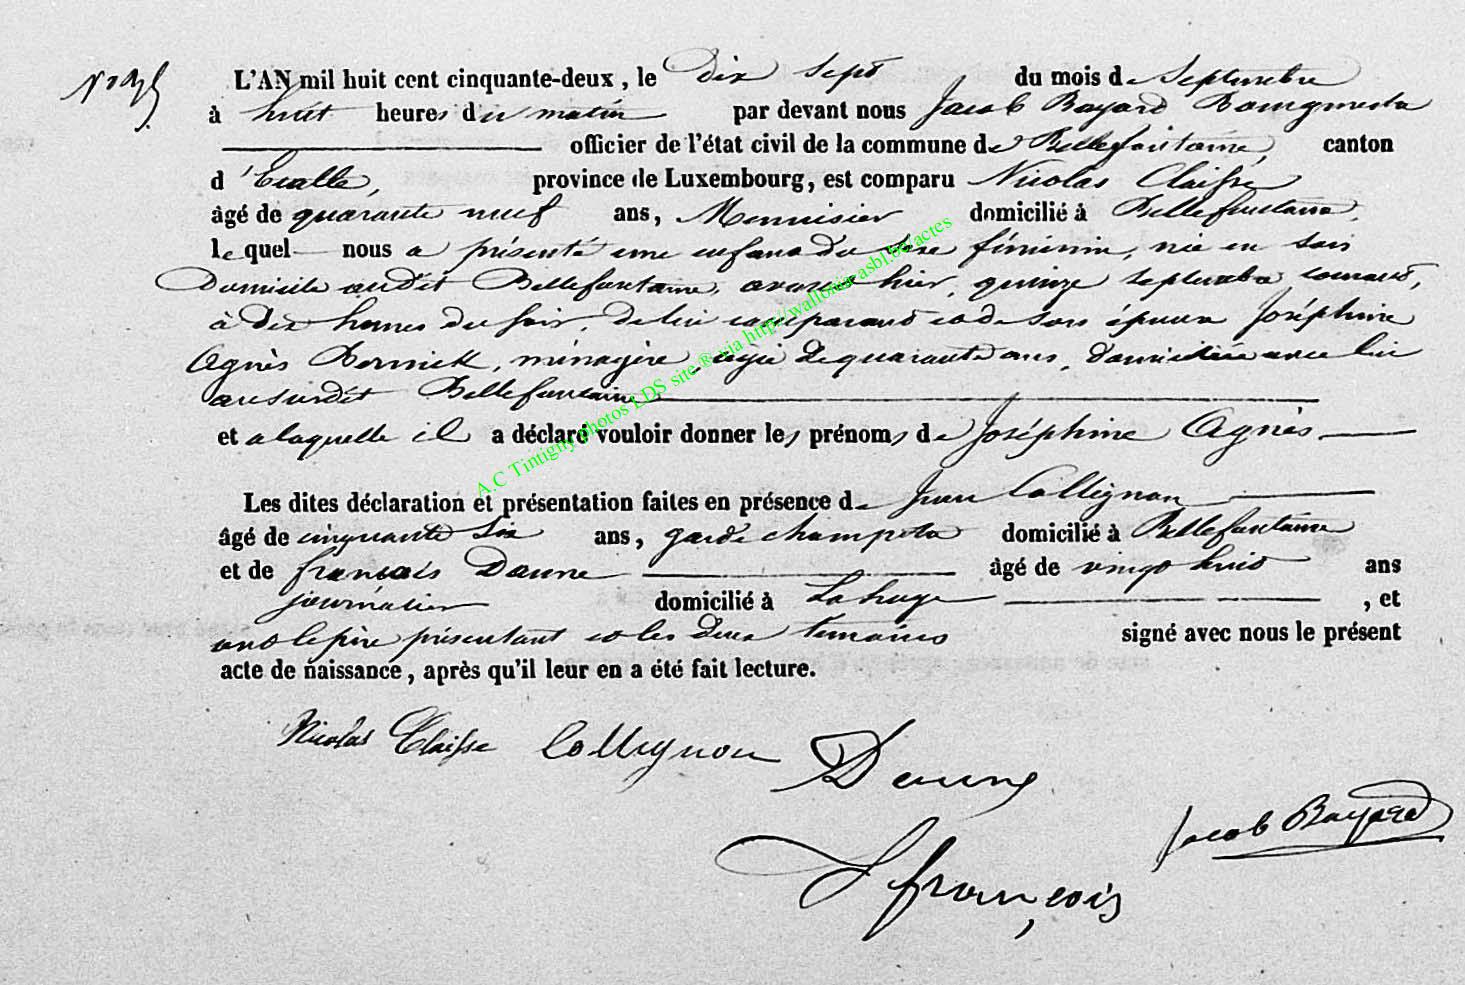 L'AN mil huit cent cinquante-deux, le Dix Sept du mois de Septembre
à huit heures du matin par devant nous Jacob Bayard Bourgmestre
officier de l'état civil de la commune de Bellefontaine, canton
d'Etalle, province de Luxembourg, est comparu Nicolas Claisse
âgé de quarante neuf ans, Menuisier domicilié à Bellefontaine,
lequel nous a présenté une enfant du sexe féminin, née en son
Domicile audit Bellefontaine, avant hier, quinze septembre courant,
à dix heures du soir, de lui comparant et de son épouse Joséphine
Agnès Bernick, ménagère, agée de quarante ans, domiciliée avec lui
au susdit Bellefontaine
et a laquelle il a déclaré vouloir donner les prénoms de Joséphine Agnès
A.C Tintigny photos LDS site ® via http://wallonia-asbl.be/actes
Les dites déclaration et présentation faites en présence de Jean Collignon
âgé de cinquante six ans, garde champetre domicilié à Bellefontaine
et de françois Daune âgé de vingt huit ans
journalier domicilié à Lahage, et
ont le père présentant et les deux temoins signé avec nous le présent
acte de naissance, après qu'il leur en a été fait lecture.
Nicolas Claisse Collignon Daune
Jacob Bayard
françois